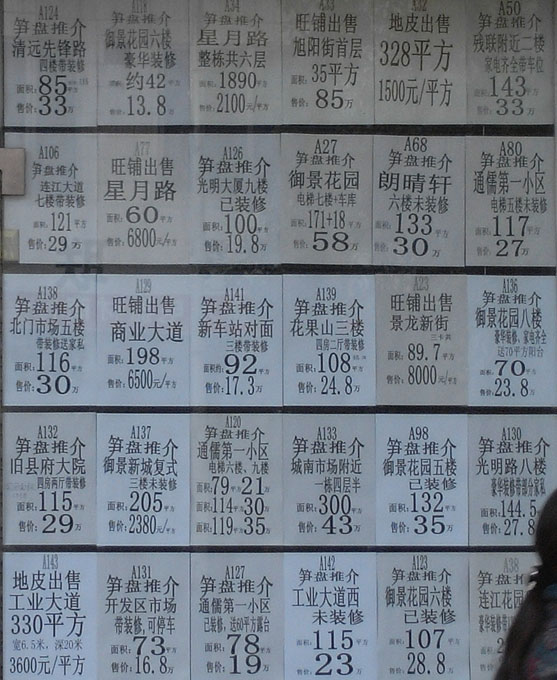 A124
笋盘推介
清远先锋路
四楼带装修
面积:85平方
售价:33万
A118
笋盘推介
御景花园六楼
豪华装修
面积:约42平方
售价:13.8万
A34
笋盘推介
星月路
整栋共六层
面积:1890平方
售价:2100元/平方
A33
旺铺出售
旭阳街首层
面积:35平方
售价:85万
A32
地皮出售
328平方
1500元/平方
A50
笋盘推介
残联附近二楼
家电齐全带车位
面积:143平方
售价:33万
A106
笋盘推介
连江大道
七楼带装修
面积:121平方
售价:29万
A77
旺铺出售
星月路
面积:60平方
售价:6800元/平方
A126
笋盘推介
光明大厦九楼
已装修
面积:100平方
售价:19.8万
A27
笋盘推介
御景花园
电梯七楼+车库
面积:171+18平方
售价:58万
A68
笋盘推介
朗晴轩
六楼未装修
面积:133平方
售价:30万
A80
笋盘推介
通儒第一小区
电梯五楼未装修
面积:117平方
售价:27万
A138
笋盘推介
北门市场五楼
带装修送家私
面积:116平方
售价:30万
A129
旺铺出售
商业大道
面积:198平方
售价:6500元/平方
A141
笋盘推介
新车站对面
三楼带装修
面积约:92平方
售价:17.3万
A139
笋盘推介
花果山三楼
四房二厅带装修
面积:108平方
售价:24.8万
A23
旺铺出售
景龙新街
三卡共
面积:89.7平方
售价:8000元/平方
A136
笋盘推介
御景花园八楼
豪华装修,家电齐全
送70平方阳台
面积:70平方
售价:23.8万
A132
笋盘推介
旧县府大院
四房两厅带装修
面积:115平方
售价:29万
A137
笋盘推介
御景新城复式
三楼未装修
面积:205平方
售价:2380元/平方
A120
笋盘推介
通儒第一小区
电梯六楼、九楼
面积:79平方 售价:21万
面积:114平方 售价:30万
面积:119平方 售价:35万
A133
笋盘推介
城南市场附近
一栋四层半
面积:300平方
售价:43万
A98
笋盘推介
御景花园五楼
已装修
面积:132平方
售价:35万
A130
笋盘推介
光明路八楼
豪华装修带部分家私
面积:144.5平方
售价:27.8
A143
地皮出售
工业大道
330平方
宽6.5米,深20米
3600元/平方
A131
笋盘推介
开发区市场
带装修,可停车
面积:73平方
售价:16.8万
A127
笋盘推介
通儒第一小区
已装修,送60平方露台
面积:78平方
售价:19万
A142
笋盘推介
工业大道西
未装修
面积:115平方
售价:23万
A123
笋盘推介
御景花园六楼
已装修
面积:107平方
售价:28.8万
A38
笋盘推
连江花园
豪华装修
面积:
售价:2